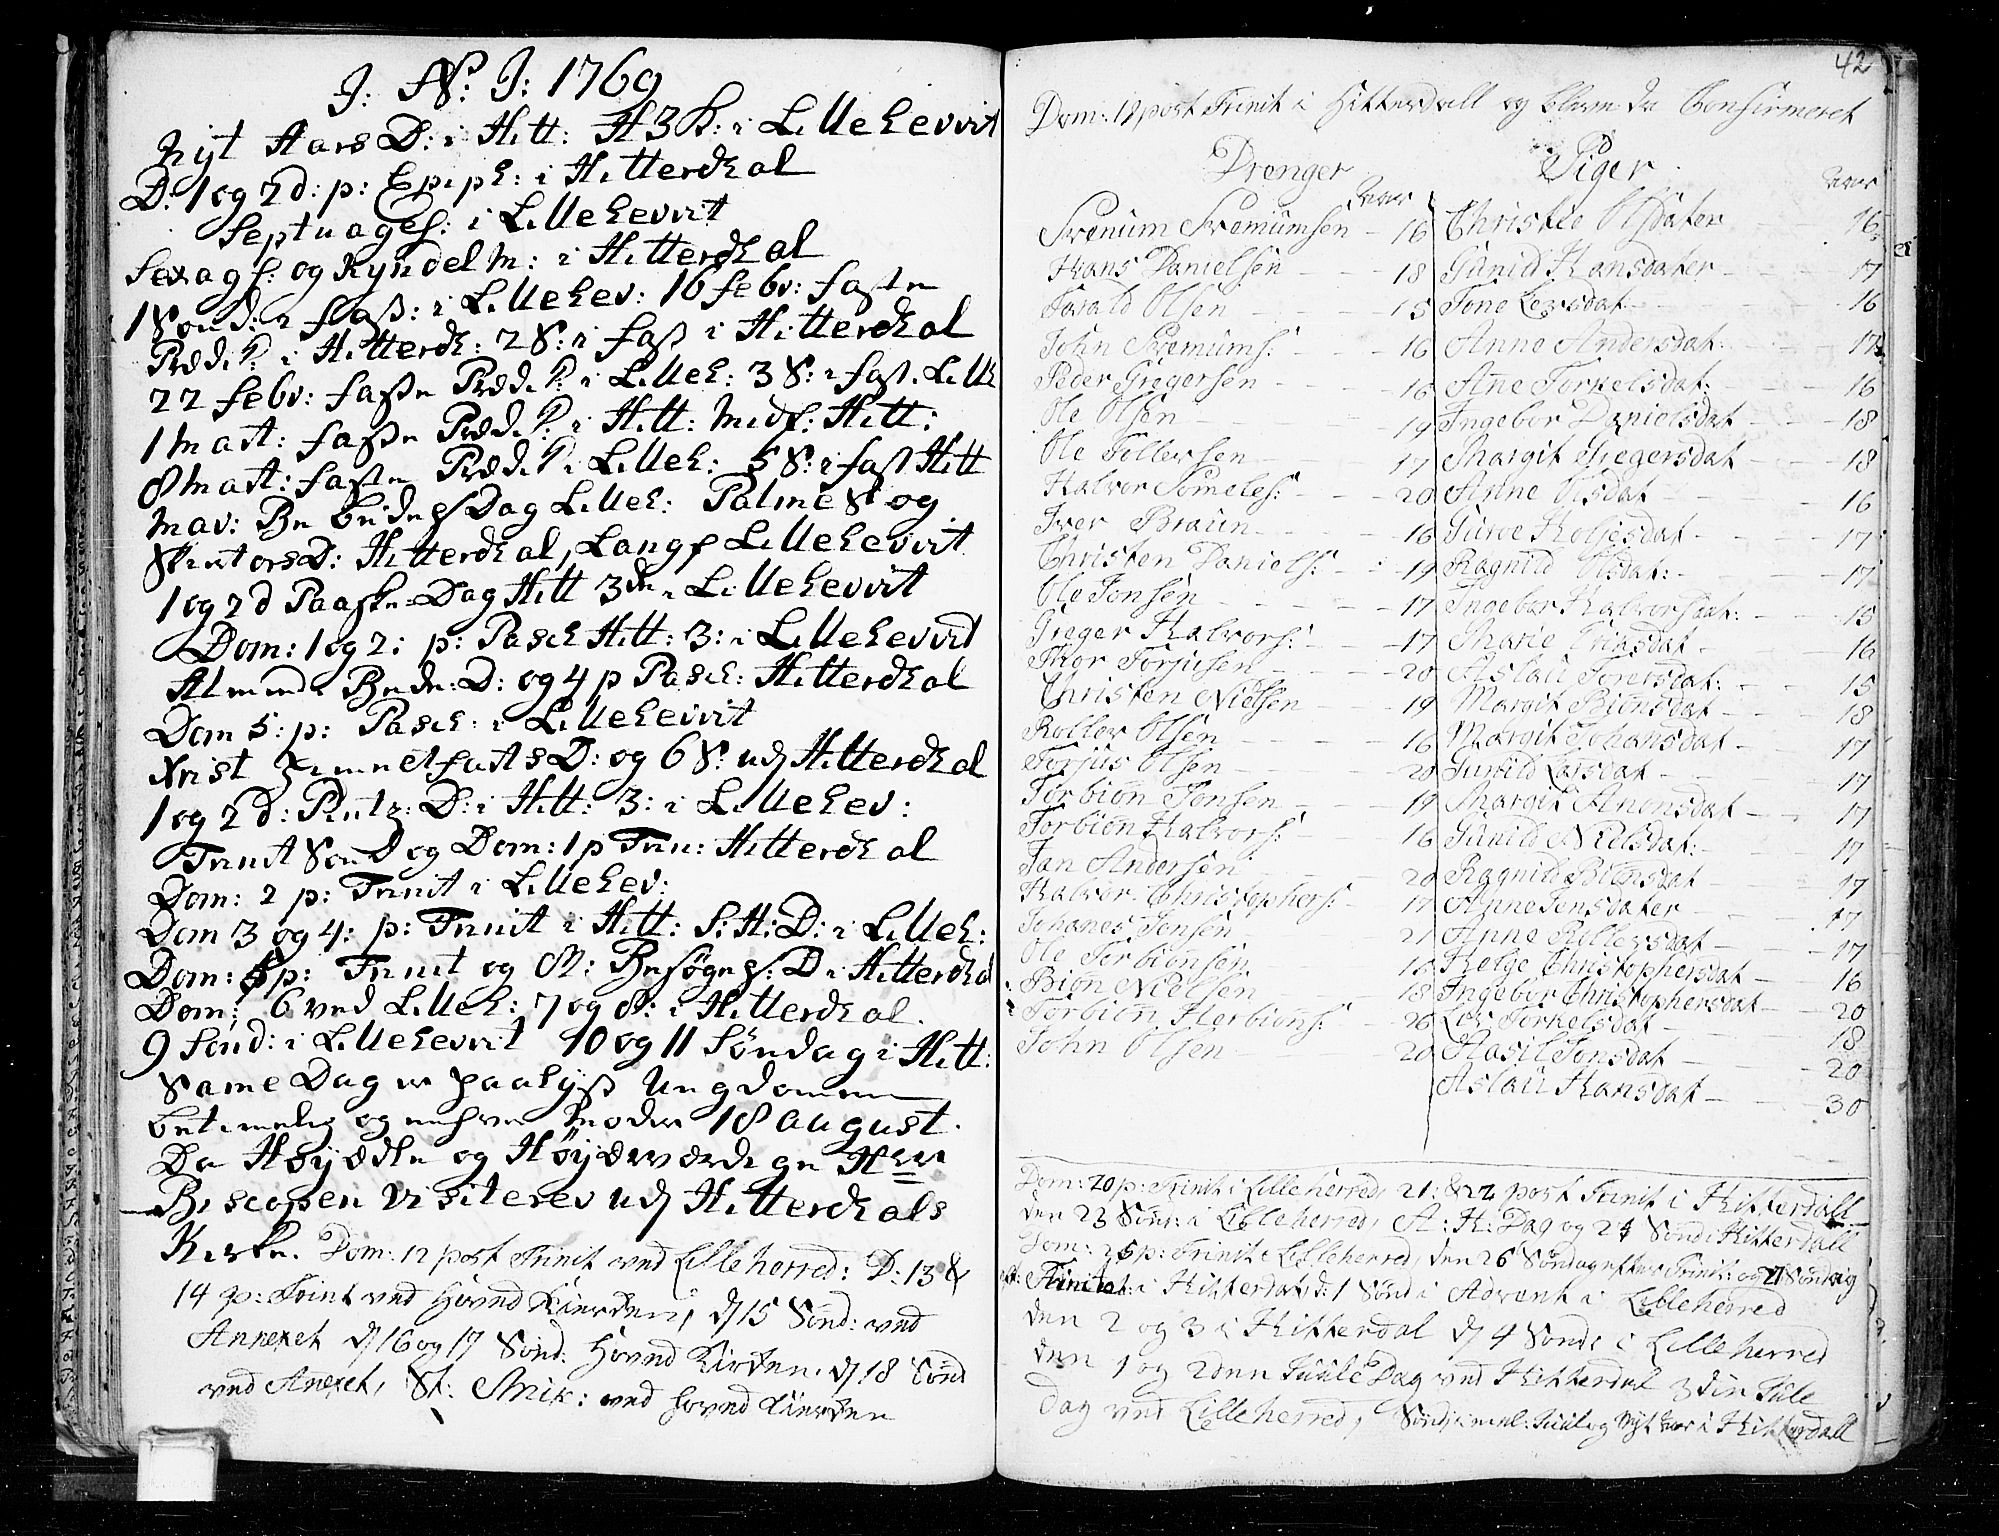 J: N: J: 1769
Nyt Aars D: i Hitt: H3K: i Lillehevrit
D: 1 og 2 d: p: Epiph: i Hitterdhal
Septuages: i Lillehevrit
Sexags: og Kyndelm: i Hitterdhal
1 Sönd: i fast: i Lillehev: 16 febr: faste
Præd: i Hitterdh: 2 S: i fast i Hitterdhal
22 febr: faste Præd: i Lilleh: 3 S: i fast: Lilleh
1 Mart: faste Præd: i Hitt: Midf: Hitt:
8 Mart: faste Præd: i Lilleh: 5 S: i fast Hitt
Mar: Bebudels Dag Lilleh: Palme S og
Skiærtors D: Hitterdhal, Langf Lillehevrit
1 og 2 d Paaske-Dag Hitt 3de i Lillehevrit
Dom: 1 og 2: p: Pasch Hitt: 3: i Lillehevrit
Almind: Bede: D: og 4 p Pasch: Hitterdhal
Dom 5: p: Pasch: i Lillehevrit
Krist Himmelfarts D: og 6 S: ved Hitterdhal
1 og 2 d: Pintz: D: i Hitt: 3: i Lillehev:
Trinit Sönd og Dom: 1 p Trin: Hitterdhal
Dom: 2 p: Trinit i Lillehev:
Dom 3 og 4: p: Trinit i Hitt: S: H: D: i Lilleh:
Dom: 5 p: Trinit og M: Besøgels: D i Hitterdhal
Dom: 6 ved Lilleh: 7 og 8: i Hitterdhal.
9 Sönd: i Lillehevrit 10 og 11 Søndag i Hitt:
Same Dag er paalyst Ungdommen
betimelig og møder 18 august.
Da Høyædle og Høyærværdige Herr
Biscopen visiterer ved Hitterdhals
Kirke. Dom: 12 post Trinit ved Lilleherred: D: 13 &
14 p: Trinit ved Hoved Kierken, d 15 Sönd: ved
Annexet d 16 og 17 Sönd: Hoved Kirken. d 18 Sönd
ved Anexet, St: Mik: ved hoved Kierken
42
Dom: 19 post Trinit i Hitterdall og bleve da Confirmeret
Drenger
Aar
Svenum Svenumsen - 16
Hans Danielsen - - - 18
Harald Olsen - - - 15
John Svenums: - - - 16
Peder Gregersen - - - 16
Ole Olsen - - - 19
Ole Tollevsen - - - 17
Halvor Someles: - - - 20
Iver Braun - - - 16
Christen Daniels: - - 19
Ole Jonsen - - - 17
Greger Halvors: - - 17
Thor Torjusen - - - 20
Christen Nielsen - - - 19
Roller Olsen - - - 16
Torjus Olsen - - - 20
Torbiön Jonsen - - - 19
Torbiön Halvors: - - - 16
Jan Andersen - - - 20
Halvor Christophers: - 17
Johanes Jonsen - - - 21
Ole Torbiönsen - - - 16
Biön Nielsen - - - 18
Torbiön Herbiöns: - - 26
John Olsen - - - 20
Piger
Aar
Christie Olsdater - - 16
Gunild Hansdater - - 17
Tone Leersdat - - - 16
Anne Andersdat: - - 17
Ane Torkelsdat: - - 16
Ingebor Danielsdat - - 18
Margit Gregersdat - - 18
Anne Olsdat - - - 16
Gurve Holjesdat - - - 17
Ragnild Olsdat: - - - 17
Ingebor Halvorsdat: - - 15
Marie Eriksdat - - - 16
Aslau Toresdat: - - - 15
Margit Biönsdat - - - 18
Margit Johansdat - - - 17
Gunild Larsdat - - - 17
Margit Amonsdat - - 17
Gunild Nielsdat: - - - 17
Ragnild Biönsdat - - 17
Anne Jensdater - - 17
Anne Rollevsdat - - - 17
Helge Christophersdat - - 16
Ingebor Christophersdat - - 20
Liv Torkelsdat - - - 18
Aasil Jonsdat - - - 20
Aslau Hansdat - - - 30
Dom: 20 p: Trinit i Lilleherred, 21: & 22 post Trinit i Hitterdall
den 23 Sönd: i Lilleherred, A: H: Dag og 24 Sönd i Hitterdall
Dom: 25 p: Trinit i Lilleherred, den 26 Söndag efter Trinit: og 27 Söndag
Trinitat: i Hitterdal, d: 1 Sönd i Advent i Lilleherred
den 2 og 3 i Hitterdal d 4 Sönd: i Lilleherred
den 1 og 2den Juule Dag ved Hitterdal 3die Jule
Dag ved Lilleherred, Sönd: imel: Juul og Nyt Aar i Hitterdall